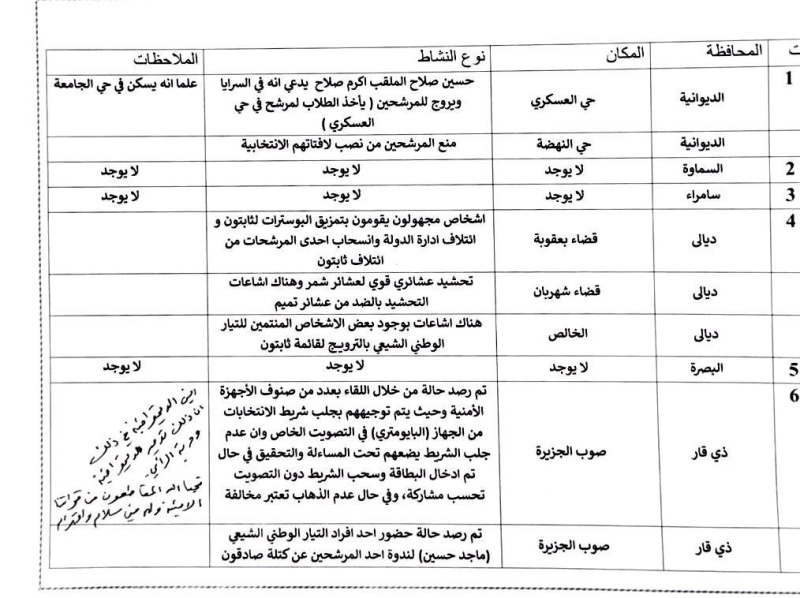 ت المحافظة المكان نوع النشاط الملاحظات
1 الديوانية حي العسكري حسين صلاح الملقب اكرم صلاح يدعي انه في السرايا علما انه يسكن في حي الجامعة
ويروج للمرشحين ( يأخذ الطلاب لمرشح في حي
العسكري )
الديوانية حي النهضة منع المرشحين من نصب لافتاتهم الانتخابية
2 السماوة لا يوجد لا يوجد لا يوجد
3 سامراء لا يوجد لا يوجد لا يوجد
4 ديالى قضاء بعقوبة اشخاص مجهولون يقومون بتمزيق البوسترات لثابتون و
ائتلاف ادارة الدولة وانسحاب احدى المرشحات من
ائتلاف ثابتون
ديالى قضاء شهربان تحشيد عشائري قوي لعشائر شمر وهناك اشاعات
التحشيد بالضد من عشائر تميم
ديالى الخالص هناك اشاعات بوجود بعض الاشخاص المنتمين للتيار
الوطني الشيعي بالترويج لقائمة ثابتون
5 البصرة لا يوجد لا يوجد لا يوجد
6 ذي قار صوب الجزيرة تم رصد حالة من خلال اللقاء بعدد من صنوف الأجهزة
الأمنية وحيث يتم توجيههم بجلب شريط الانتخابات
من الجهاز (البايومتري) في التصويت الخاص وان عدم
جلب الشريط يضعهم تحت المساءلة والتحقيق في حال
تم ادخال البطاقة وسحب الشريط دون التصويت
تحسب مشاركة، وفي حال عدم الذهاب تعتبر مخالفة
أين الديمقراطية في ذلك
وحرية الرأي
ذي قار صوب الجزيرة تم رصد حالة حضور احد افراد التيار الوطني الشيعي
(ماجد حسين) لندوة احد المرشحين عن كتلة صادقون